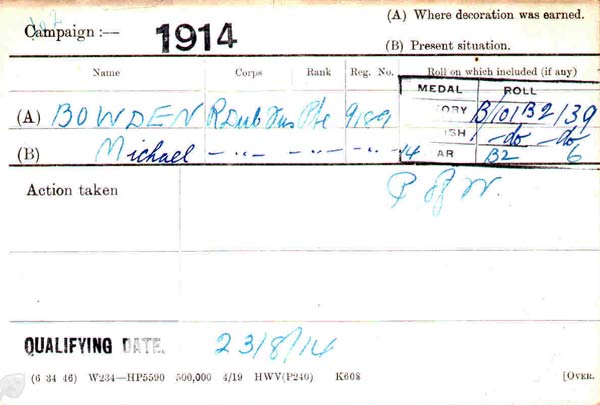 Campaign :— 1914
(A) Where decoration was earned.
(B) Present situation.
Name Corps Rank Reg. No. Roll on which included (if any)
MEDAL ROLL
(A) BOWDEN R Dub Fus Pte 9189 ORY B/101B2 139
(B) Michael — " — — " — — " — ISH — do — do
14 AR B2 6
Action taken P of W.
QUALIFYING DATE. 23/8/14
(6 34 46) W234—HP5590 500,000 4/19 HWV(P240) K608 [OVER.